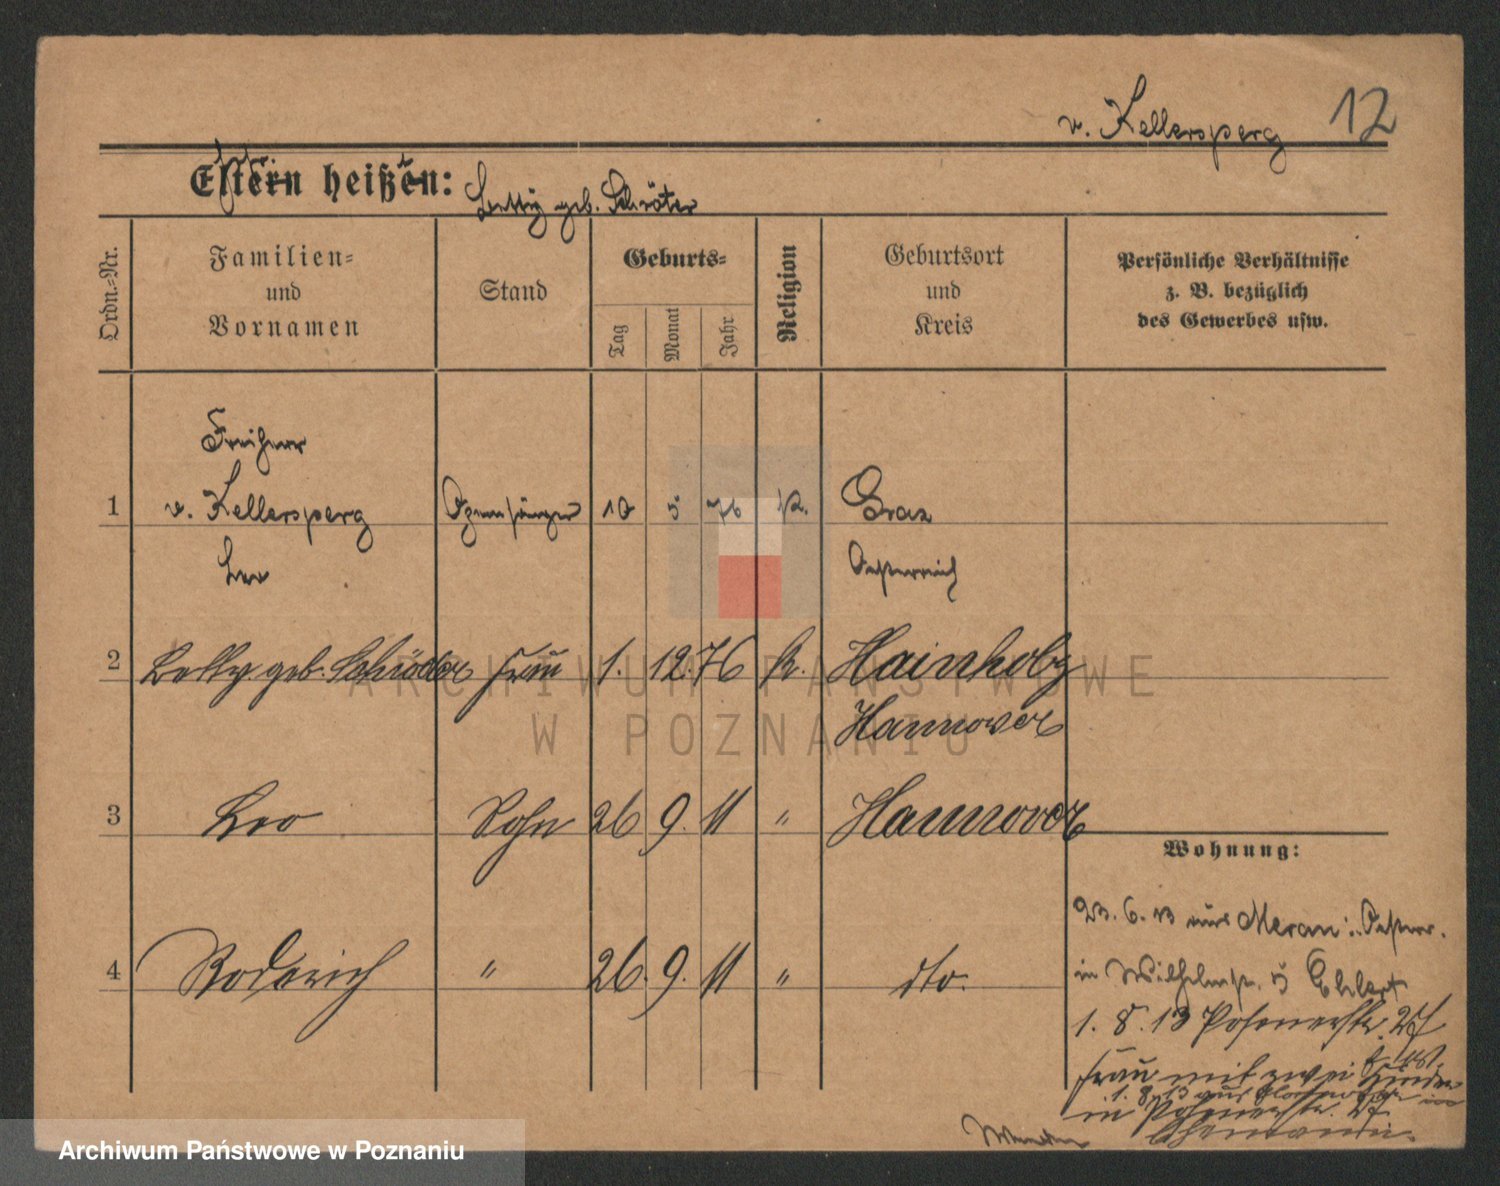 v. Kellersperg 12
Eltern heißen:
Betty geb. Schröter
Ordn.-Nr.
Familien-
und
Vornamen
Stand
Geburts-
Tag
Monat
Jahr
Religion
Geburtsort
und
Kreis
Persönliche Verhältnisse
z. B. bezüglich
des Gewerbes usw.
Freiherr
1 v. Kellersperg Opernsänger 10 5 76 k. Graz
Leo Oesterreich
2 Betty geb. Schröder Frau 1. 12. 76 k. Hainholz
Hannover
3 Leo Sohn 26 9. 11 " Hannover
4 Roderich " 26. 9. 11 " dto.
Wohnung:
23. 6. 13 aus Meran i. Oesterr.
in Wilhelmstr. 5 Ehlert
1. 8. 13 Posenerstr. 27
Frau mit zwei Kinder
1. 8. 13 aus
in Posenerstr. 27
Wenden
Ehemann
ARCHIWUM PAŃSTWOWE
W POZNANIU
Archiwum Państwowe w Poznaniu